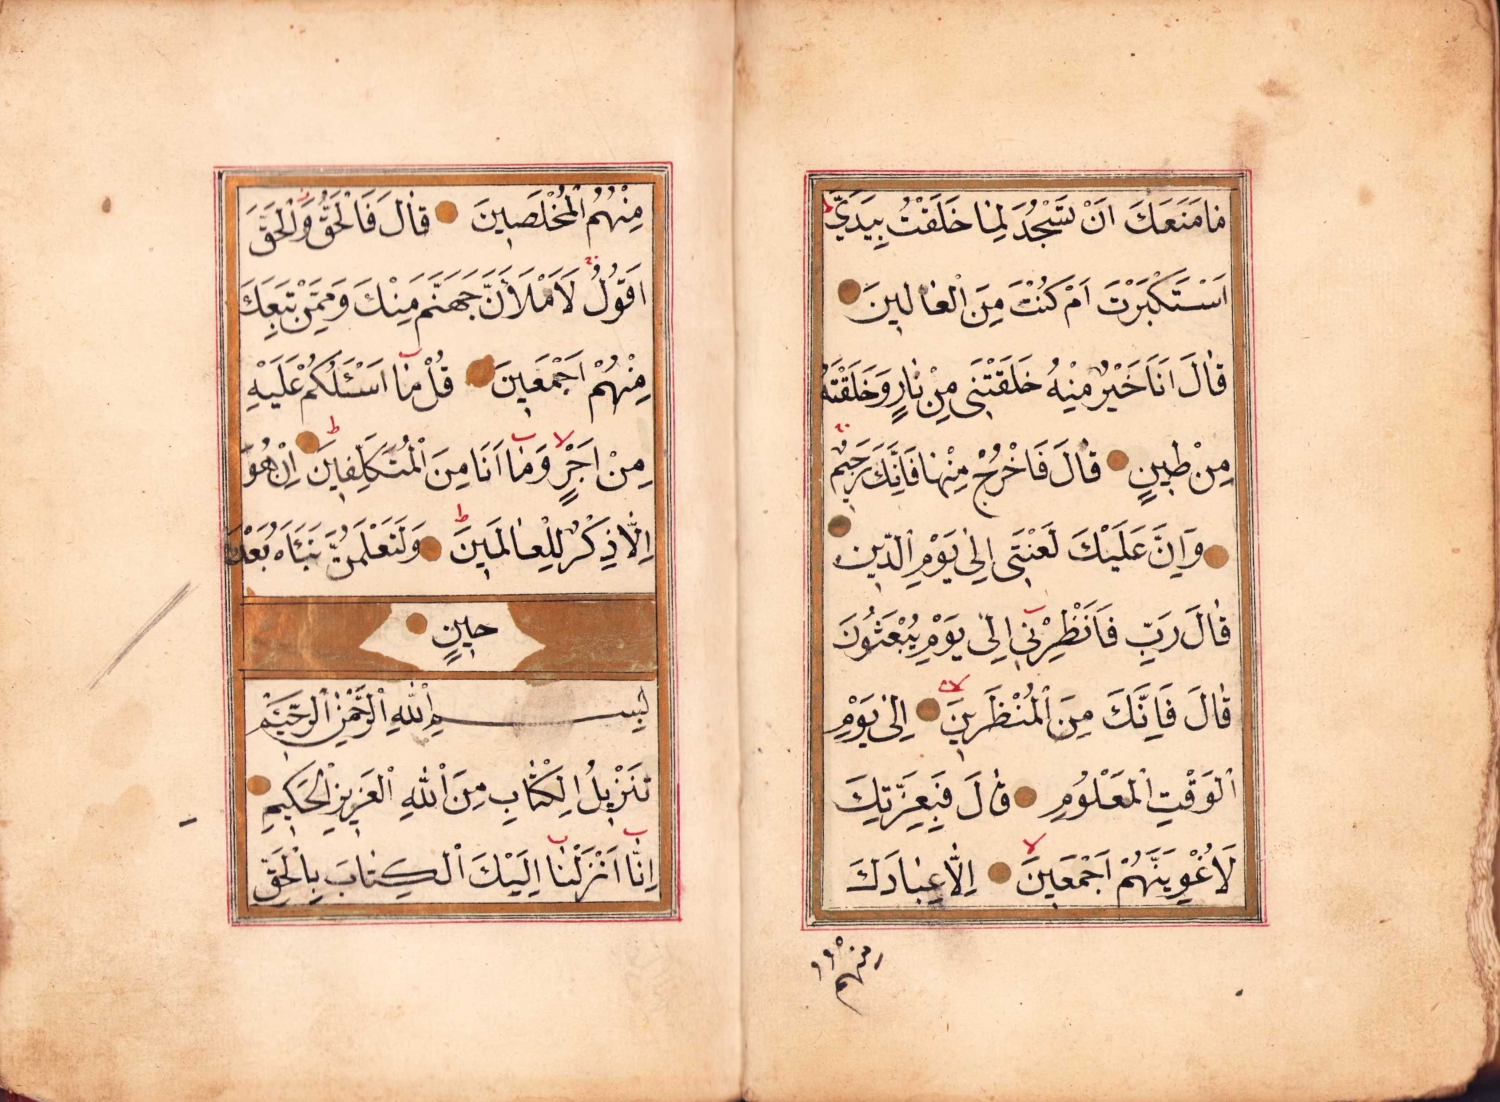 مَا مَنَعَكَ اَنْ تَسْجُدَ لِمَا خَلَقْتُ بِيَدَيَّ ط
اَسْتَكْبَرْتَ اَمْ كُنْتَ مِنَ الْعَالِينَ
قَالَ اَنَا خَيْرٌ مِنْهُ خَلَقْتَنِى مِنْ نَارٍ وَخَلَقْتَهُ
مِنْ طِينٍ قَالَ فَاخْرُجْ مِنْهَا فَاِنَّكَ رَجِيمٌ
وَاِنَّ عَلَيْكَ لَعْنَتِى اِلٰى يَوْمِ الدِّينِ
قَالَ رَبِّ فَاَنْظِرْنِى اِلٰى يَوْمِ يُبْعَثُونَ
قَالَ فَاِنَّكَ مِنَ الْمُنْظَرِينَ لا اِلٰى يَوْمِ
الْوَقْتِ الْمَعْلُومِ قَالَ فَبِعِزَّتِكَ
لَاُغْوِيَنَّهُمْ اَجْمَعِينَ لا اِلَّا عِبَادَكَ
منهم
مِنْهُمُ الْمُخْلَصِينَ قَالَ فَالْحَقُّ وَالْحَقَّ
اَقُولُ لَاَمْلَأَنَّ جَهَنَّمَ مِنْكَ وَمِمَّنْ تَبِعَكَ
مِنْهُمْ اَجْمَعِينَ قُلْ مَا اَسْئَلُكُمْ عَلَيْهِ
مِنْ اَجْرٍ وَمَا اَنَا مِنَ الْمُتَكَلِّفِينَ ط اِنْ هُوَ
اِلَّا ذِكْرٌ لِلْعَالَمِينَ ط وَلَتَعْلَمُنَّ نَبَئَاهُ بَعْدَ
حِينٍ
بِسْمِ اللّٰهِ الرَّحْمٰنِ الرَّحِيمِ
تَنْزِيلُ الْكِتَابِ مِنَ اللّٰهِ الْعَزِيزِ الْحَكِيمِ
اِنَّا اَنْزَلْنَا اِلَيْكَ الْكِتَابَ بِالْحَقِّ